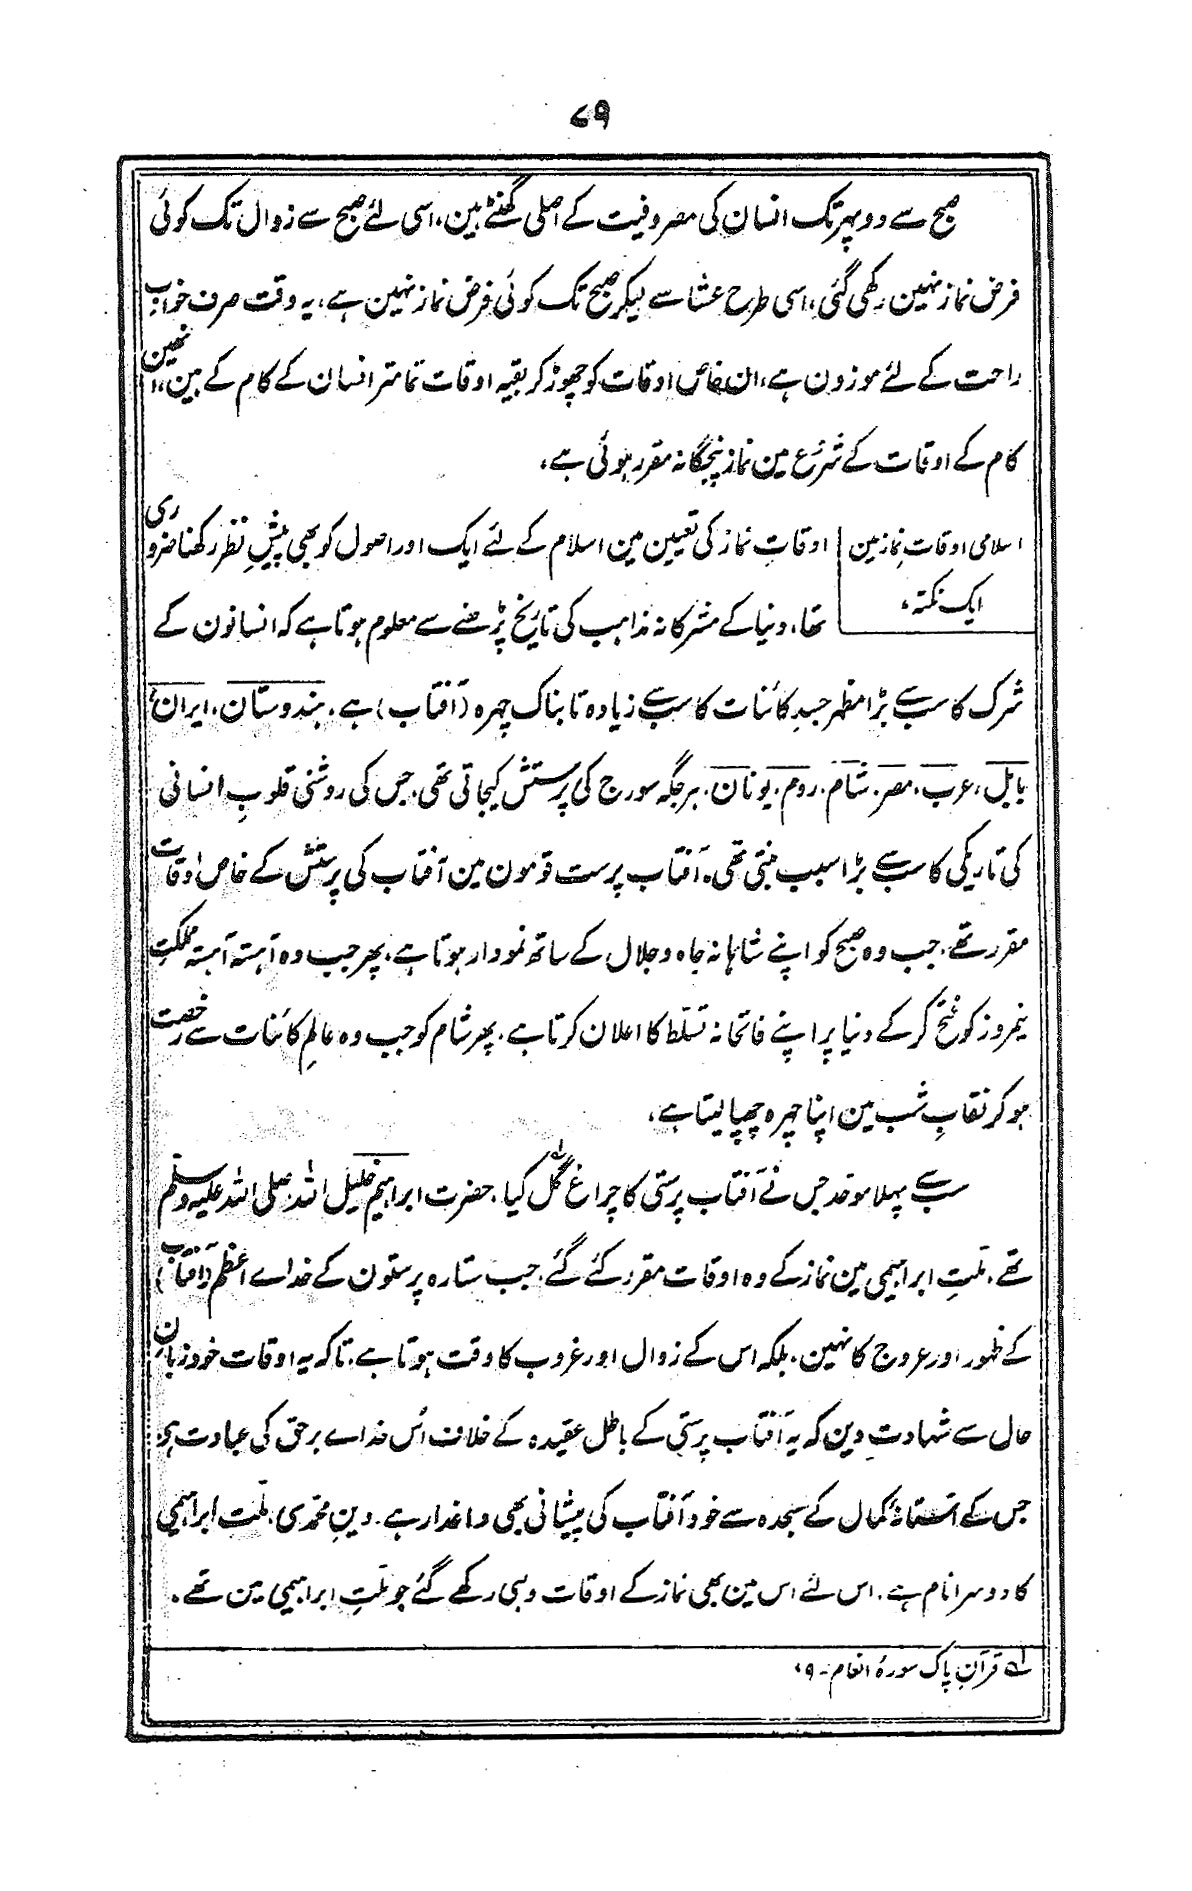 ۷۹
صبح سے دوپہر تک انسان کی مصروفیت کے اصلی گھنٹے ہین، اسی لئے صبح سے زوال تک کوئی
فرض نماز نہین رکھی گئی، اسی طرح عشا سے لیکر صبح تک کوئی فرض نماز نہین ہے، یہ وقت صرف خواب
راحت کے لئے موزون ہے، ان خاص اوقات کو چھوڑ کر بقیہ اوقات تمامتر انسان کے کام کے ہین، انھین
کام کے اوقات کے شروع مین نماز پنجگانہ مقرر ہوئی ہے،
اسلامی اوقاتِ نماز مین
ایک نکتہ،
اوقاتِ نماز کی تعیین مین اسلام کے لئے ایک اور اصول کو بھی پیشِ نظر رکھنا ضروری
تھا، دنیا کے مشرکانہ مذاہب کی تاریخ پڑھنے سے معلوم ہوتا ہے کہ انسانون کے
شرک کا سب سے بڑا مظہر جبدِ کائنات کا سب سے زیادہ تابناک چہرہ (آفتاب) ہے، ہندوستان، ایران،
بابل، عرب، مصر، شام، روم، یونان، ہر جگہ سورج کی پرستش کیجاتی تھی، جس کی روشنی قلوبِ انسانی
کی تاریکی کا سب سے بڑا سبب بنتی تھی۔ آفتاب پرست قومون مین آفتاب کی پرستش کے خاص اوقات
مقرر تھے، جب وہ صبح کو اپنے شاہانہ جاہ و جلال کے ساتھ نمودار ہوتا ہے، پھر جب وہ آہستہ آہستہ مملکتِ
نیمروز کو فتح کر کے دنیا پر اپنے فاتحانہ تسلّط کا اعلان کرتا ہے، پھر شام کو جب وہ عالمِ کائنات سے رخصت
ہو کر نقابِ شب مین اپنا چہرہ چھپا لیتا ہے،
سب سے پہلا موحّد جس نے آفتاب پرستی کا چراغ گُل کیا، حضرت ابراہیم خلیل اللہ صلی اللہ علیہ وسلم
تھے، ملّتِ ابراہیمی مین نماز کے وہ اوقات مقرر کئے گئے، جب ستارہ پرستون کے خداے اعظم (آفتاب)
کے ظہور اور عروج کا نہین، بلکہ اس کے زوال اور غروب کا وقت ہوتا ہے، تاکہ یہ اوقات خود زبانِ
حال سے شہادت دین کہ یہ آفتاب پرستی کے باطل عقیدہ کے خلاف اُس خداے برحق کی عبادت ہی،
جس کے آستانۂ کمال کے سجدہ سے خود آفتاب کی پیشانی بھی داغدار ہے، دینِ محمّدی، ملّت ابراہیمی
کا دوسرا نام ہے، اس لئے اس مین بھی نماز کے اوقات وہی رکھے گئے جو ملّتِ ابراہیمی مین تھے،
لے قرآنِ پاک سورۂ انعام - ۹،